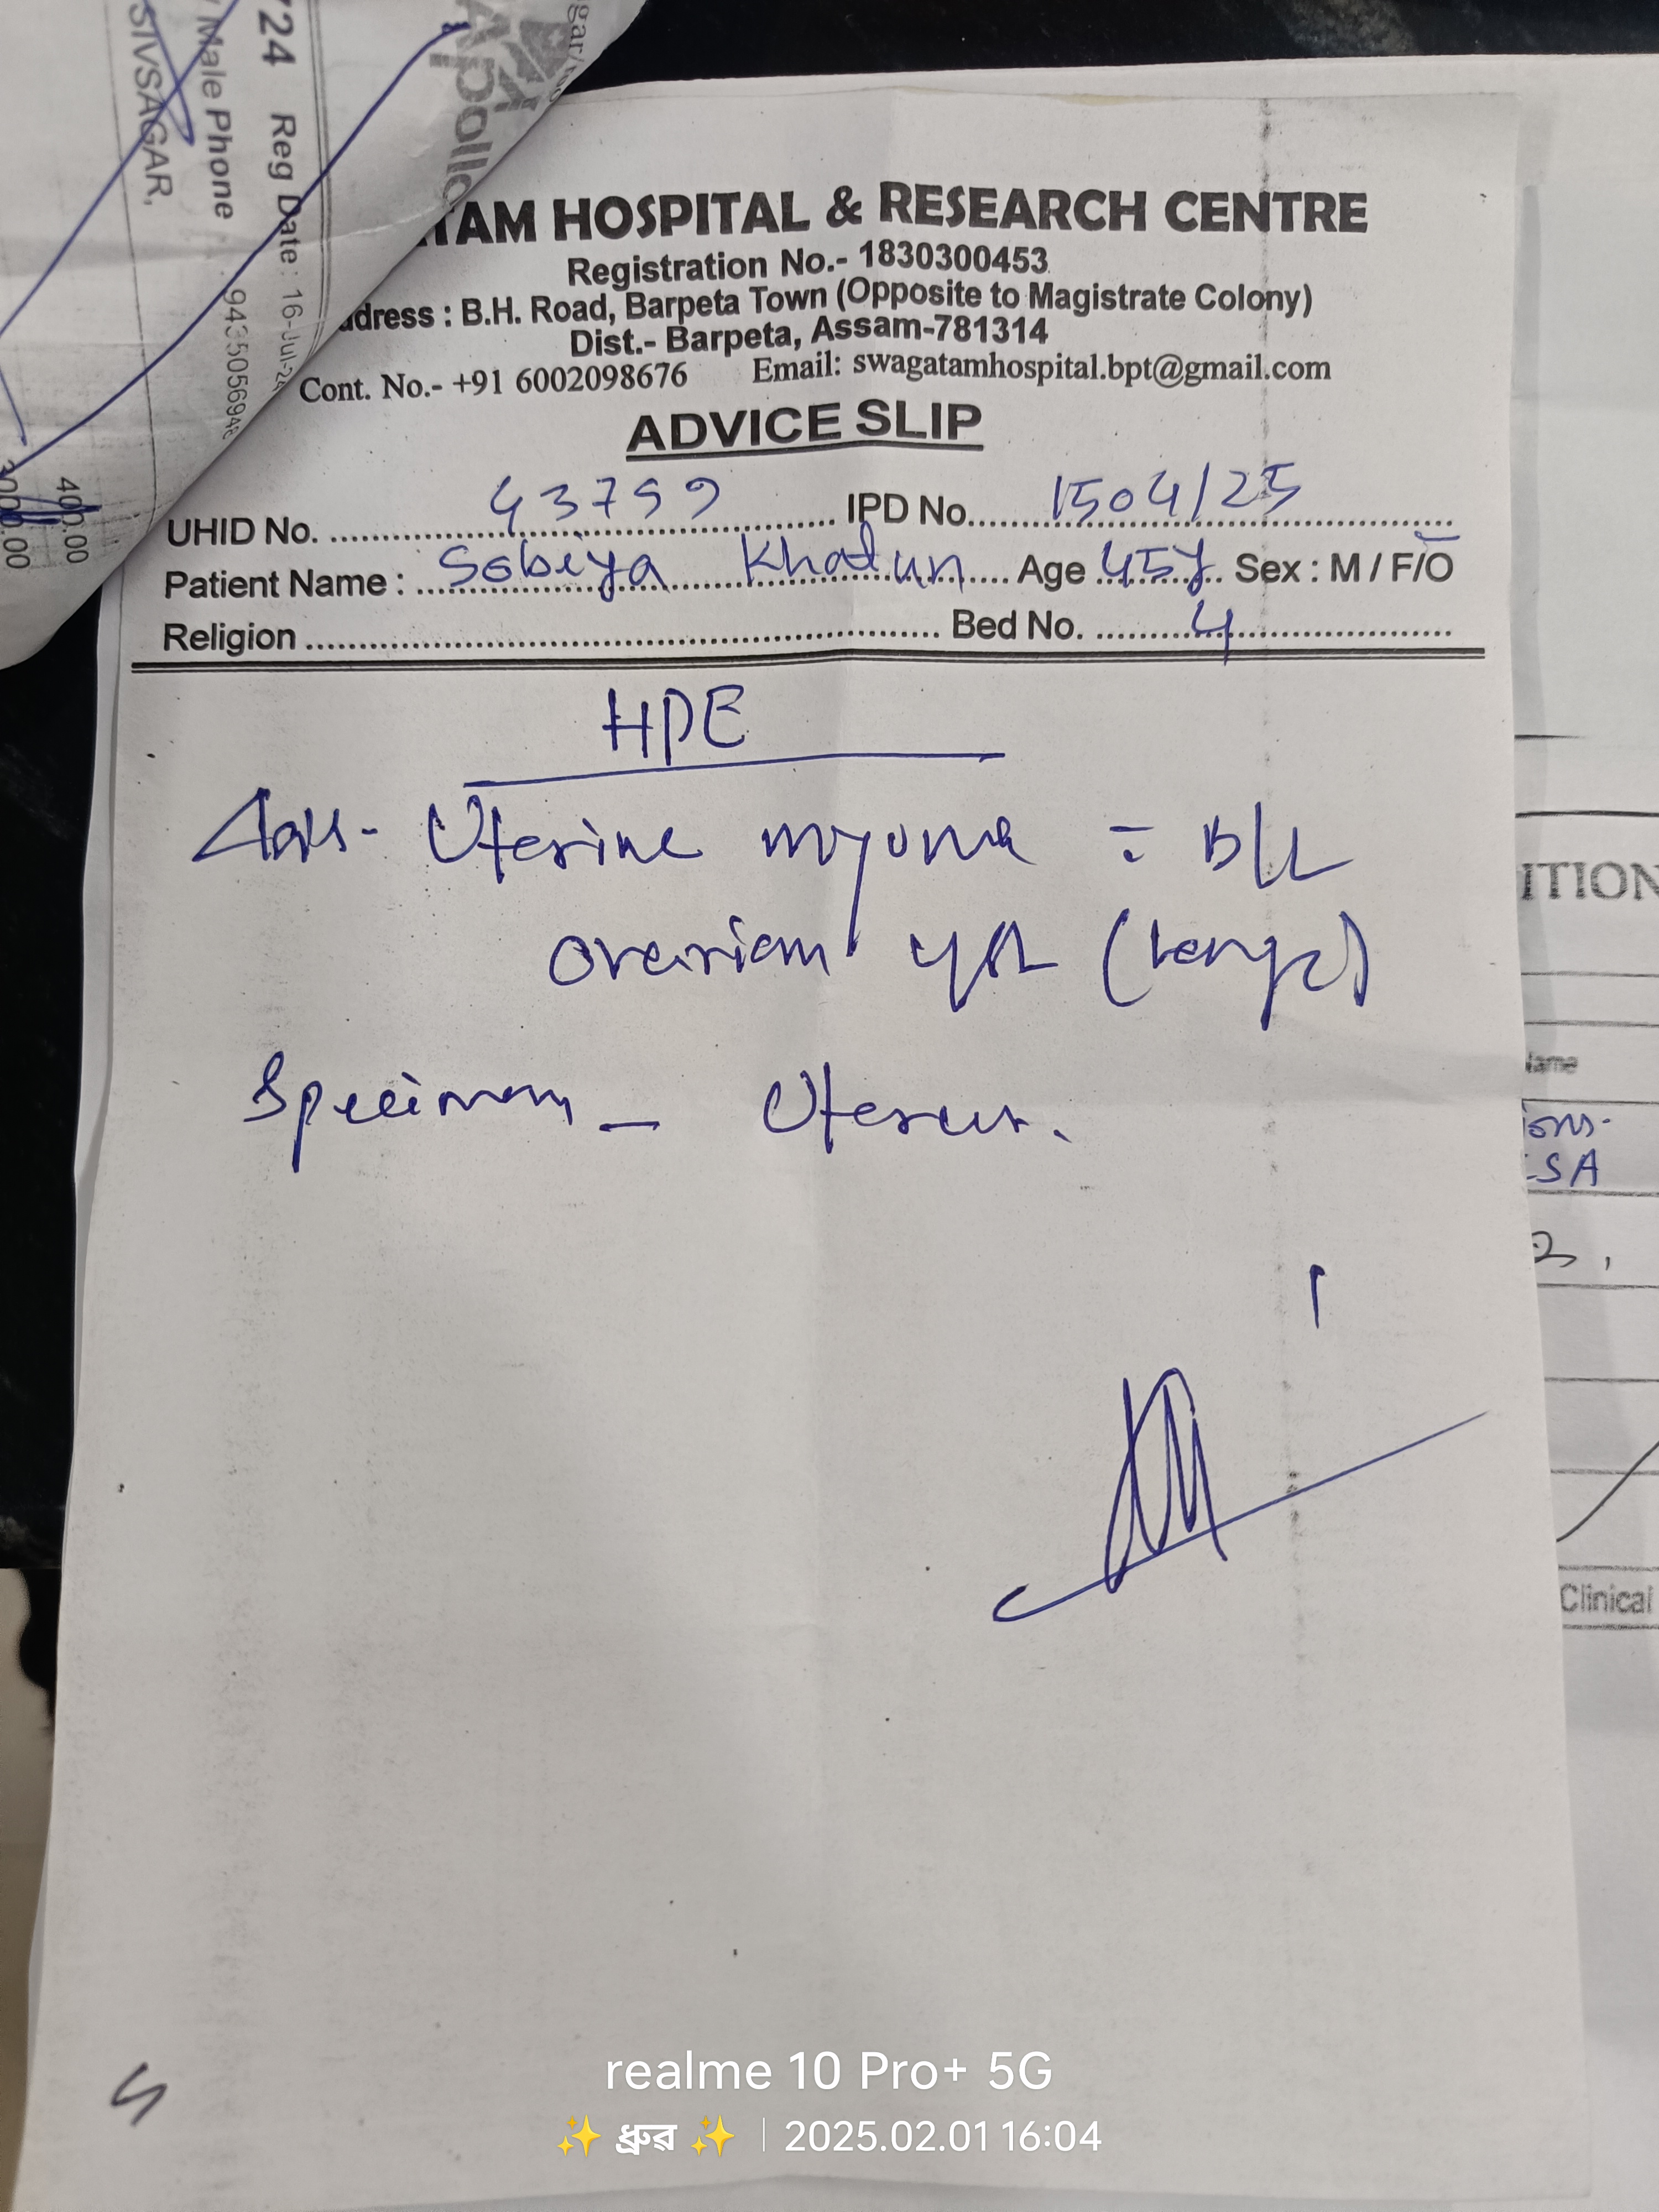 gar/
Apollo
724 Reg Date : 16-Jul-2
/ Male Phone : 9435056948
SIVSAGAR,
400.00
300.00
TAM HOSPITAL & RESEARCH CENTRE
Registration No.- 1830300453
ddress : B.H. Road, Barpeta Town (Opposite to Magistrate Colony)
Dist.- Barpeta, Assam-781314
Cont. No.- +91 6002098676 Email: swagatamhospital.bpt@gmail.com
ADVICE SLIP
UHID No. 43799 IPD No. 1504/25
Patient Name : Sobiya Khatun Age 45y Sex : M / F/O
Religion Bed No. 4
HPE
Uterine myoma = B/L
ovarian cyst (large)
Specimen - Uterus.
ITION
Name
ions-
SA
2,
Clinical
realme 10 Pro+ 5G
✨ ধ্ৰুৱ ✨ | 2025.02.01 16:04